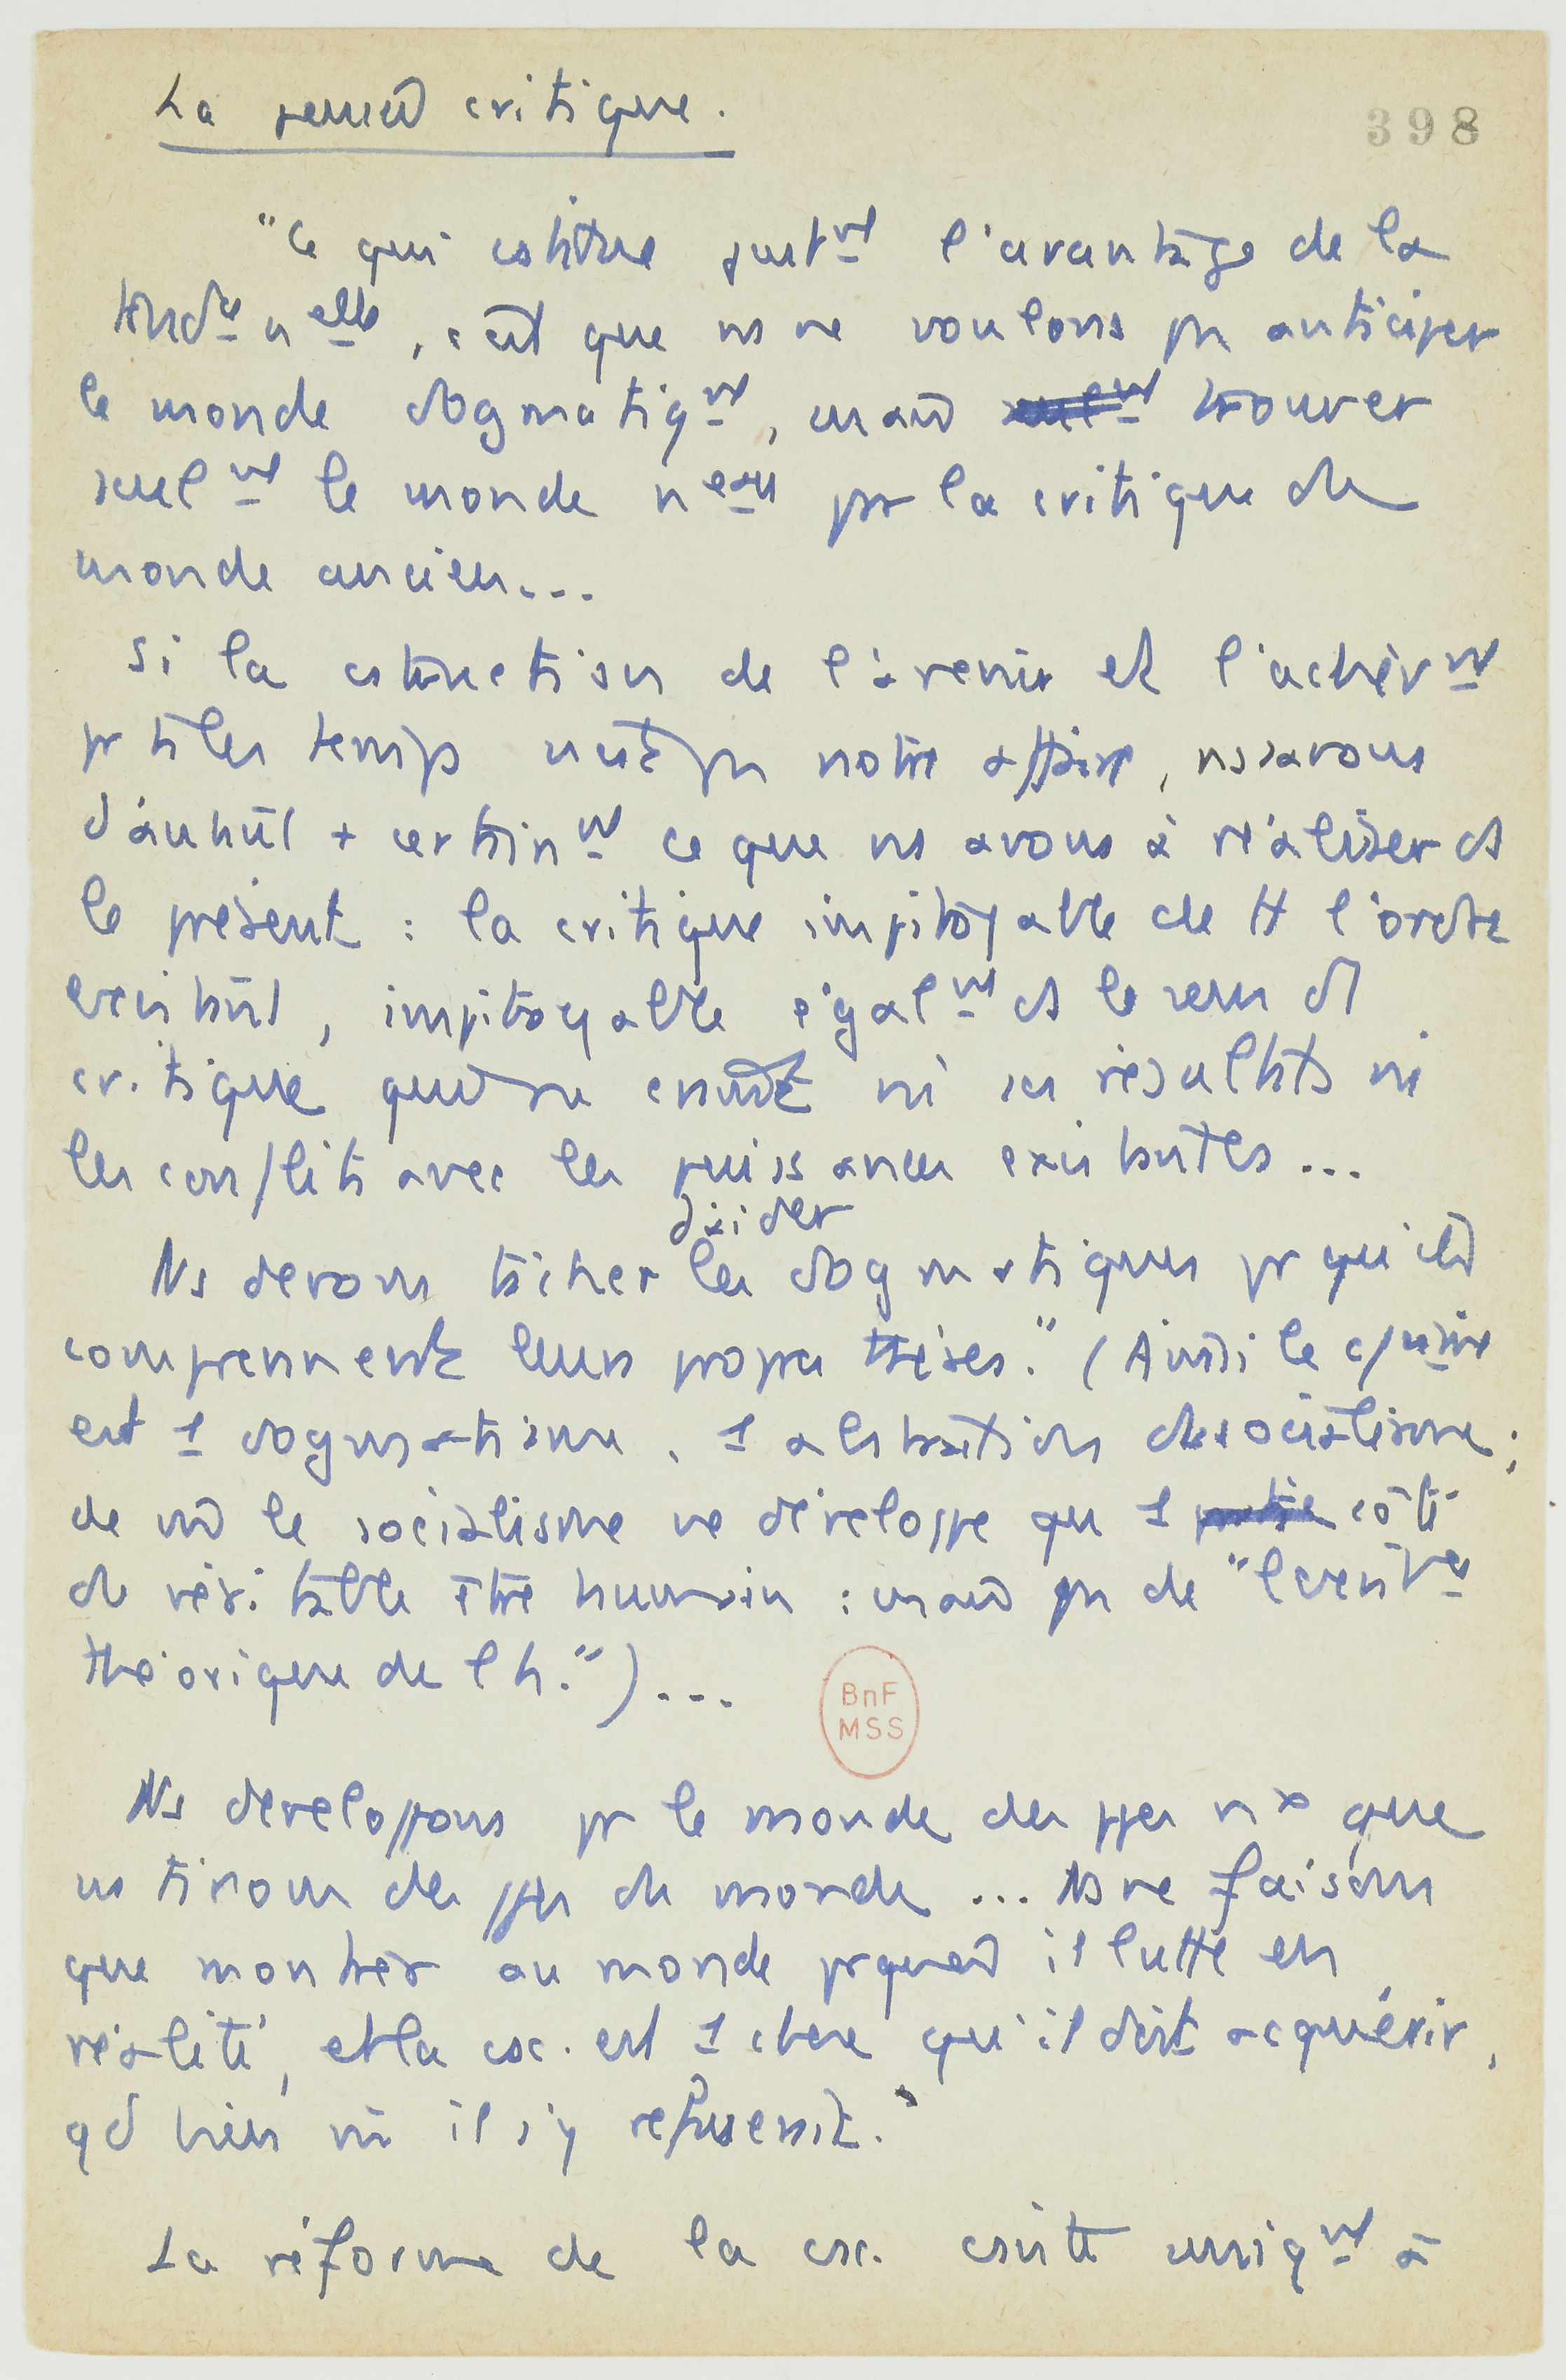 La pensée critique.
398
"Ce qui cstitue just^mt l'avantage de la
tend^ce n^elle, c'est que ns ne voulons pas anticiper
le monde dogmatiq^mt, mais seul^mt trouver
seul^mt le monde n^eau par la critique du
monde ancien...
Si la cstruction de l'avenir et l'achèv^mt
pr ts les temps n'est pas notre affaire, ns savons
d'autant + certain^mt ce que ns avons à réaliser ds
le présent : la critique impitoyable de tt l'ordre
existant, impitoyable égal^mt ds le sens où
critique ne craint ni ses résultats ni
les conflits avec les puissances existantes...
Ns devons tâcher d'aider les dogmatiques pr qu'ils
comprennent leurs propres thèses." (Ainsi le cmunisme
est 1 dogmatisme, 1 abstraction du socialisme ;
de m le socialisme ne développe qu 1 partie côté
du véritable être humain : mais pas de "l'exist^ce
théorique de l'h.")...
BnF
MSS
Ns développons pr le monde des ppes nx que
ns tirons des ppes du monde ... Ns ne faisons
que montrer au monde pquoi il lutte en
réalité, et la csc. est 1 chose qu'il doit acquérir,
qd bien m il s'y refuserait."
La réforme de la csc. csiste uniq^mt à